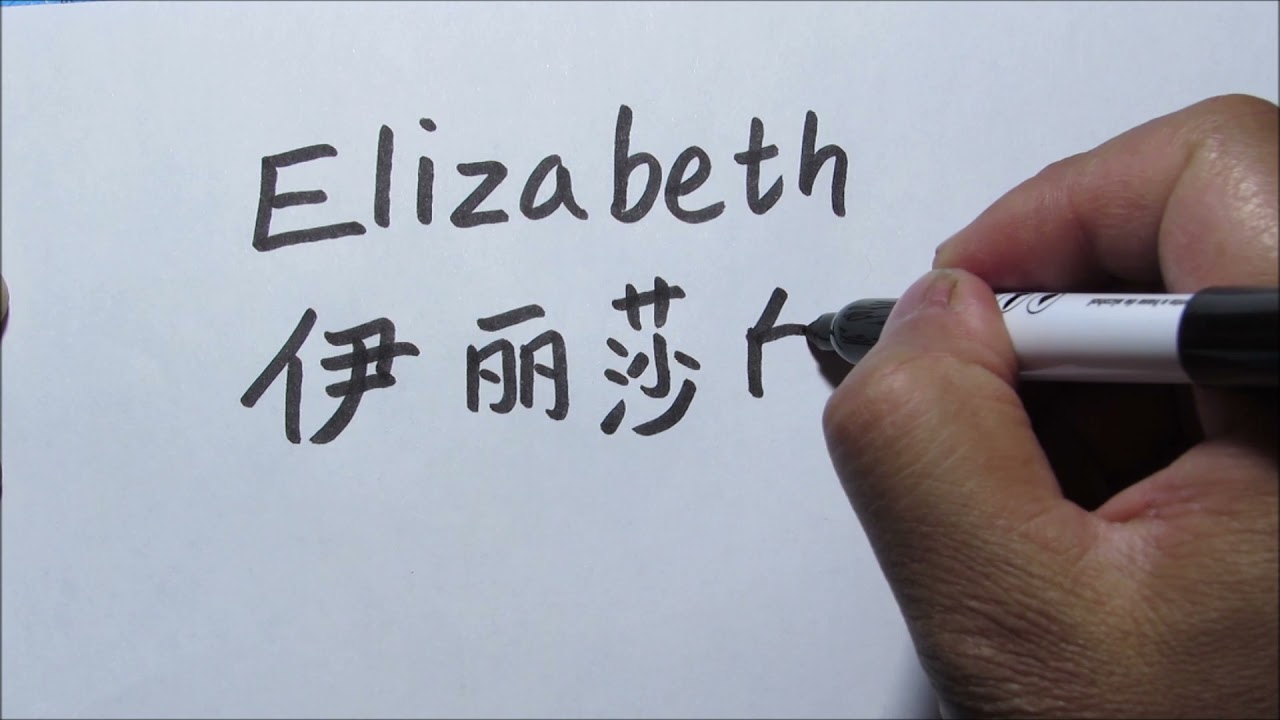 Elizabeth
伊丽莎